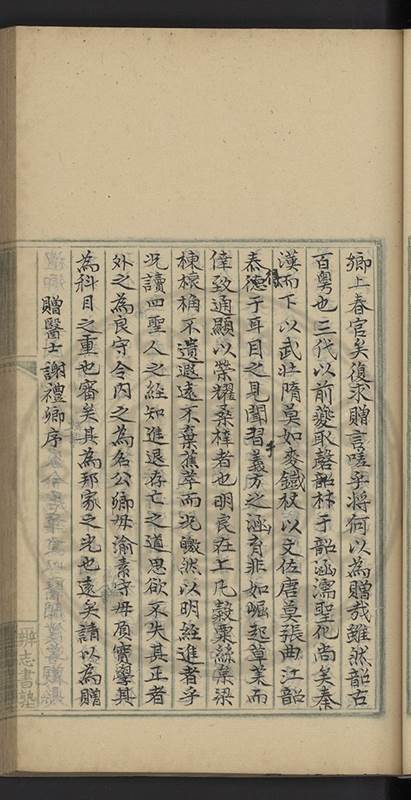 卿上春官矣復求贈言嗟乎將何以為贈哉雖然韶古
百粵也三代以前夔取磬林于韶涵濡聖化尚矣秦
漢而下以武壯隋莫如麥鐵杖以文佐唐莫張曲江韶
泰德于耳目之見聞習義方之涵育非如崛起草萊而
得
于
倖致通顯以榮耀桑梓者也明良在上凡榖粟絲枲梁
棟榱桷不遺遐遠不棄蕉萃而况皦然以明經進者乎
况讀四聖人之經知進退存亡之道思欲不失其正者
外之為良守令内之為名公卿毋渝素守毋負實學其
為科目之重也審矣其為邦家之光也遠矣請以為贈
贈醫士謝禮卿序
辨志書塾